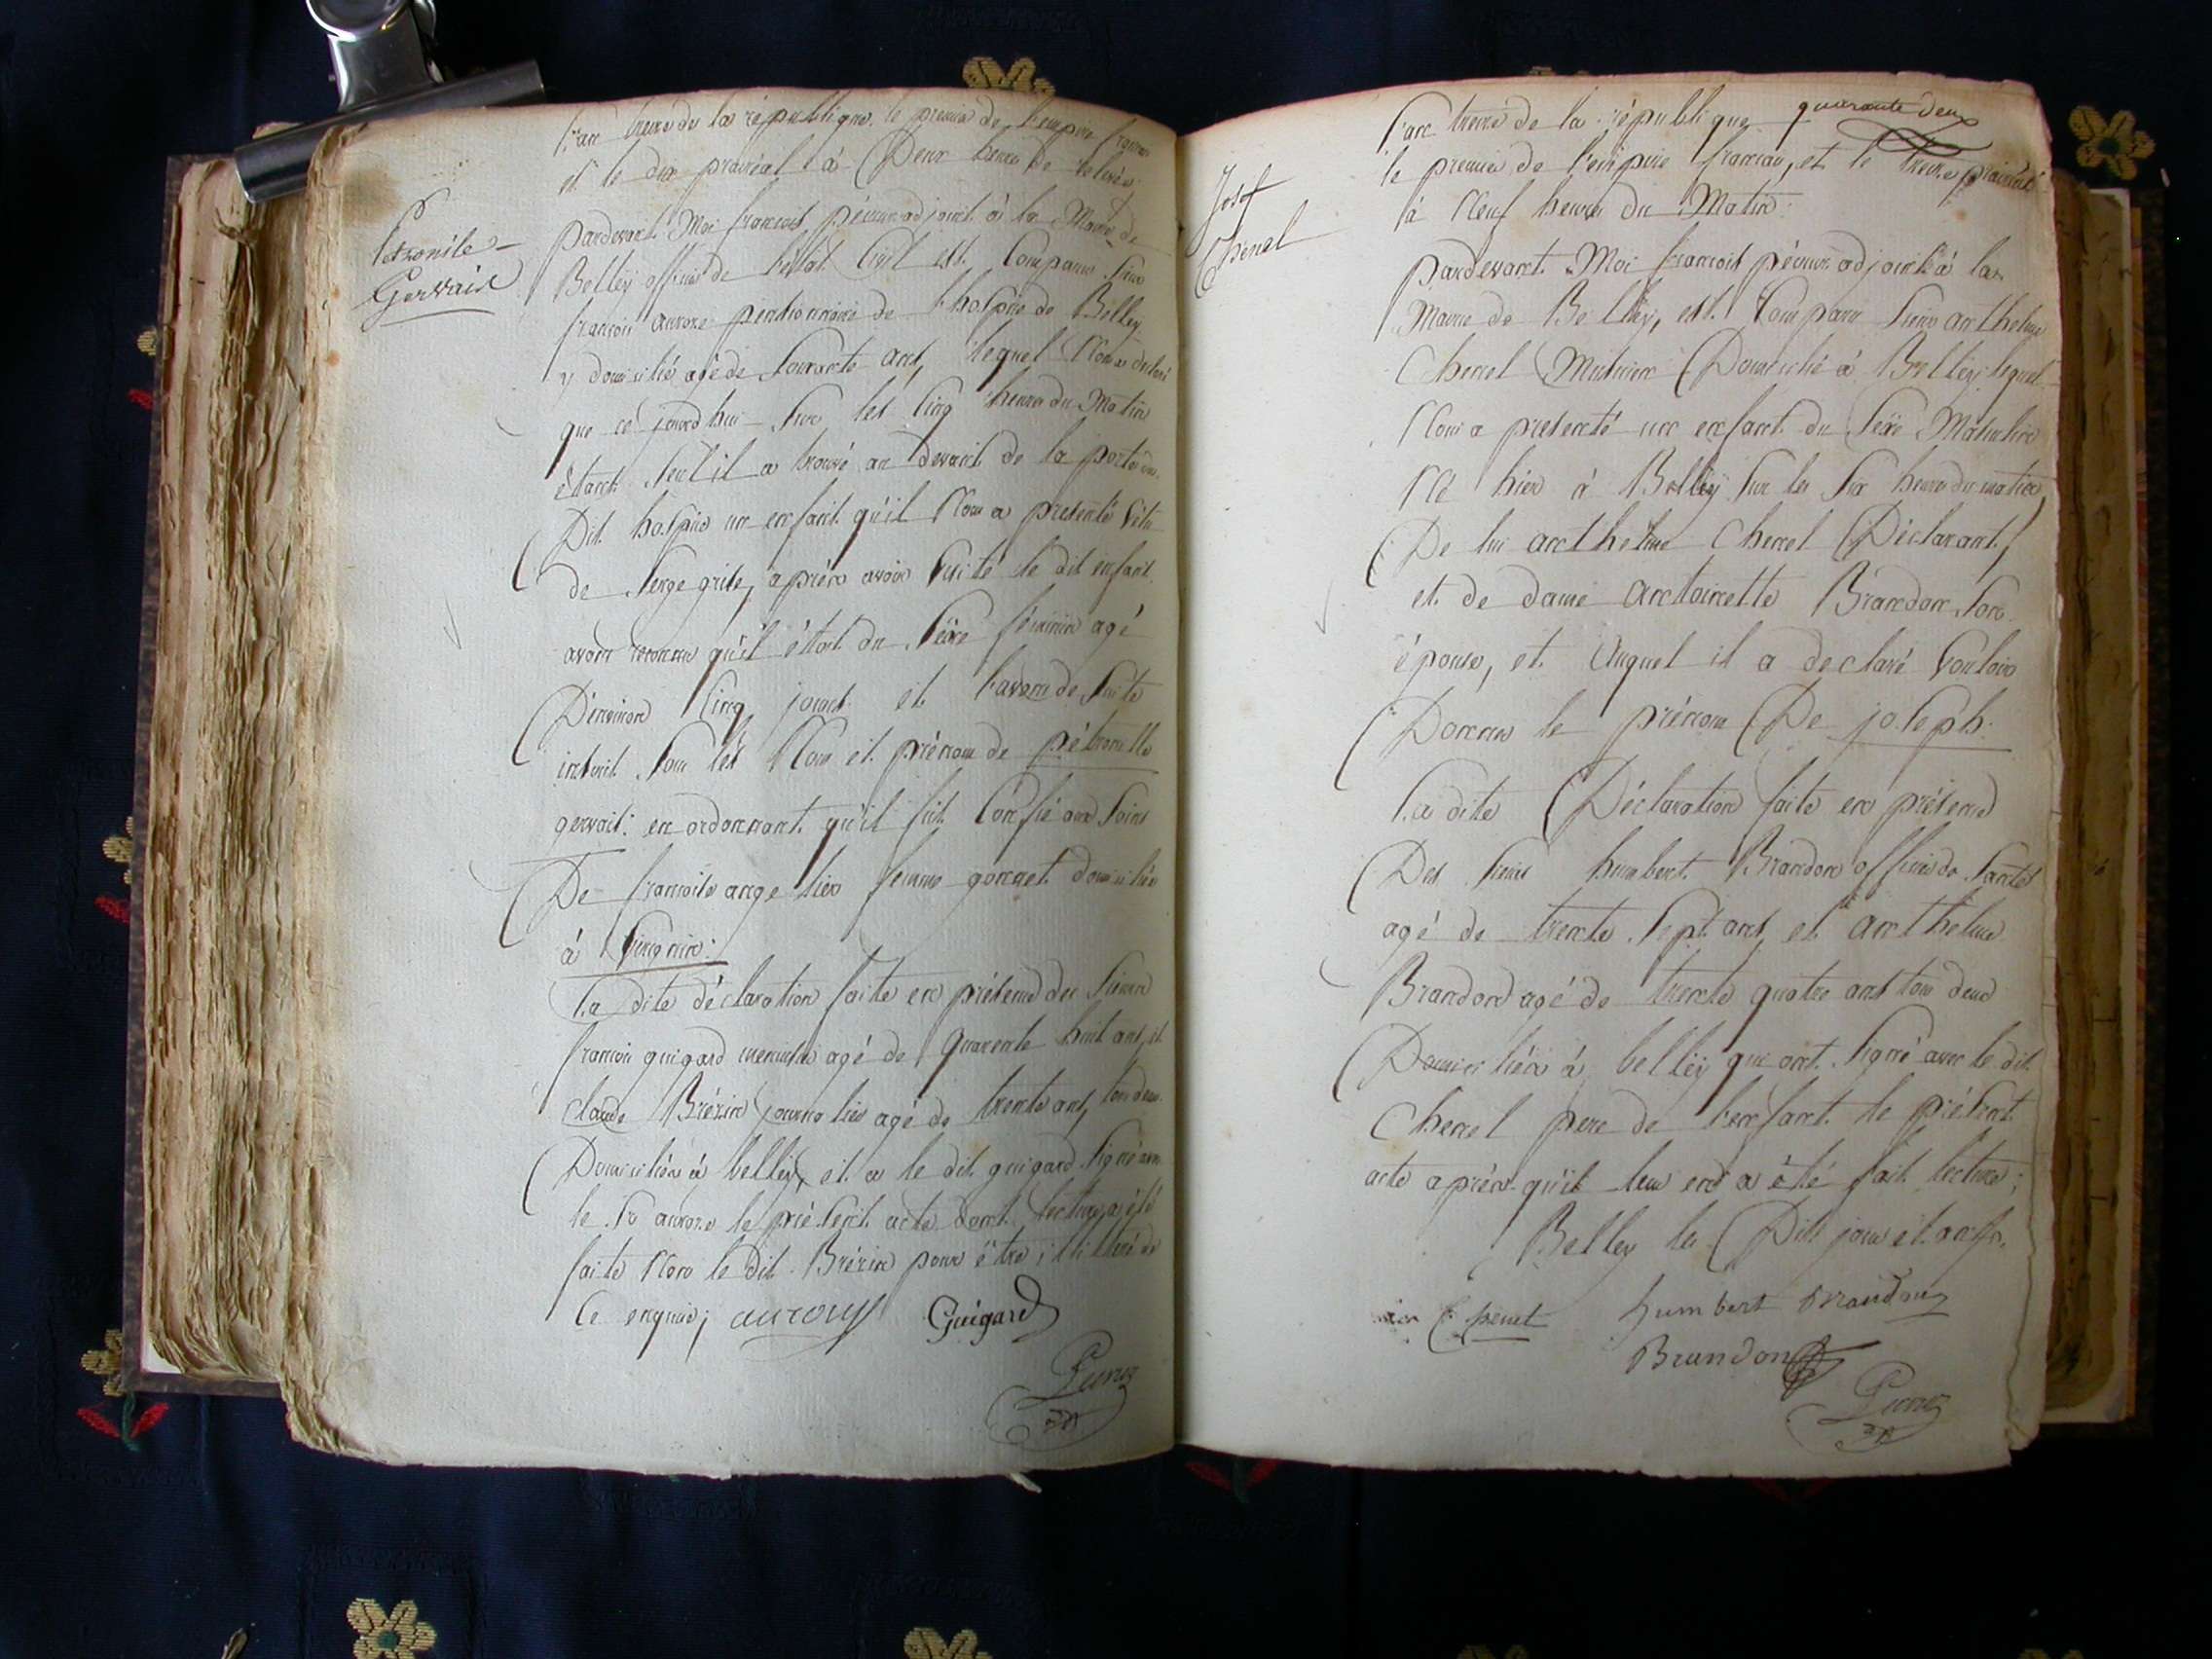 Petronile
Gervais
L'an treize de la république, le premier de l'empire français
et le dix prairéal à Deux heures de relevée
pardevant Moi françois péronne adjoint à la Mairie de
Belley officier de l'état Civil est Comparu Sieur
françois pensionnaire de l'hospice de Belley
y domicilié agé de Soixante ans, lequel Nous a déclaré
que ce jourd'hui Sur les Cinq heures du Matin
étant Seul il a trouvé au devant de la porte du
Dit hospice un enfant qu'il Nous a presenté Vétu
de Serge grise, après avoir Visité le dit enfant
avons reconnu qu'il étoit du Séxe féminin agé
D'environ Cinq jours et l'avons de Suite
inscrit Sous les Nom et prénom de pétronille
gervais: en ordonnant qu'il fut Confié aux Soins
De françoise ange femme gonnet domiciliée
à
La dite déclaration faite en présence des Sieurs
françois guigard menuisier agé de quarente huit ans, et
claude Brézin journalier agé de trente ans, tous deux
Domiciliés à belley, et a le dit guigard Signé avec
le Sr le présent acte dont lecture a été
faite Non le dit Brézin pour être illitéré de
Ce enquis; Guigard
quarante deux
Josef
Chenel
L'an treize de la république
le premier de l'empire français, et le treize prairéal
à Neuf heures du Matin:
pardevant Moi françois adjoint à la
Mairie de Belley, est Comparu Sieur anthelme
Chenel Domicilié à Belley lequel
Nous a presenté un enfant du Séxe Masculin
Né hier à Belley Sur les Six heures du matin,
De lui anthelme Chenel Déclarant,
et de dame antoinette Brandon Son
épouse, et Auquel il a declaré Vouloir
Donner le prénom De joseph.
La dite Déclaration faite en présence
Des Sieurs humbert Brandon officier de Santé
agé de trente Sept ans, et anthelme
Brandon agé de trente quatre ans tous deux
Domiciliés à belley qui ont Signé avec le dit
Chenel pere de l'enfant le présent
acte après qu'il leur en a été fait lecture;
Belley les Dits jour et an
humbert Brandon
Brandon